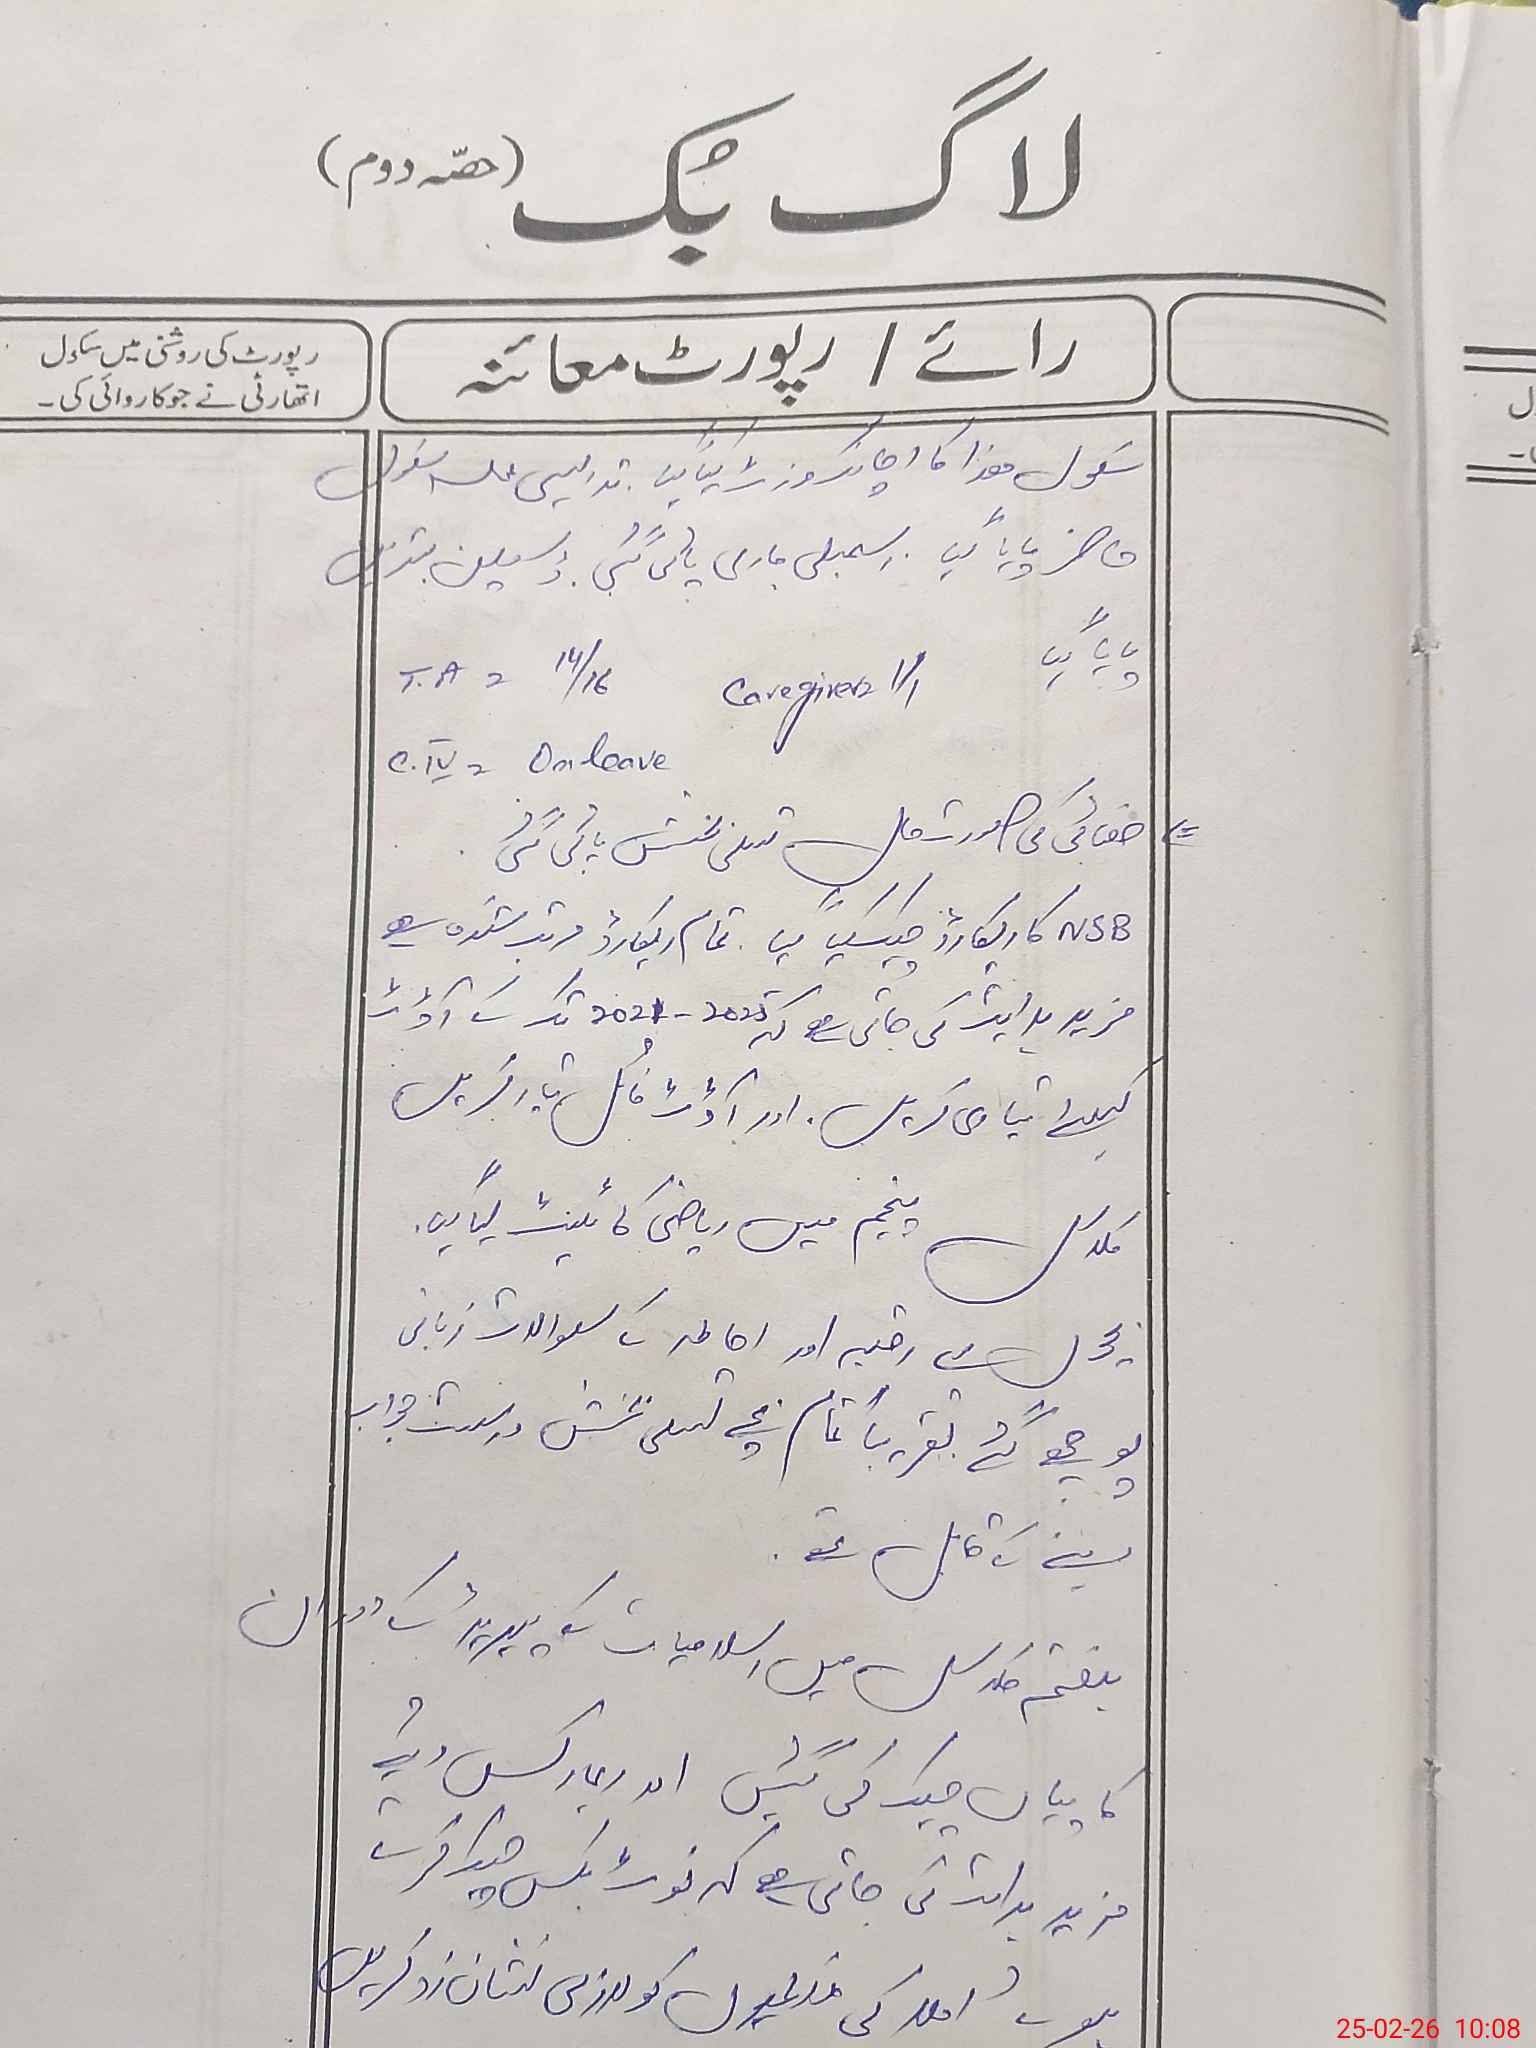 لاگ بُک (حصّہ دوم)
رائے / رپورٹ معائنہ
رپورٹ کی روشنی میں سکول
اتھارٹی نے جو کاروائی کی۔
سکول ھذا کا اچانک وزٹ کیا گیا۔ تدریسی عملہ سکول
حاضر پایا گیا۔ اسمبلی جاری پائی گئی۔ ڈسپلن بہترین
پایا گیا
Caregivers 1/1
T.A = 14/16
C.IV = On leave
صفائی کی صورت حال تسلی بخش پائی گئی۔
NSB کا ریکارڈ چیک کیا گیا۔ تمام ریکارڈ مرتب شدہ ہے
مزید ہدایت کی جاتی ہے کہ 2025-2021 تک کے آڈٹ
کیلئے تیاری کریں۔ اور آڈٹ فائل تیار کریں
کلاس پنجم میں ریاضی کا ٹیسٹ لیا گیا۔
بچوں سے رقبہ اور احاطہ کے سوالات زبانی
پوچھے گئے تقریباً تمام بچے تسلی بخش درست جواب
دینے کے قابل تھے۔
ہفتم کلاس میں اسلامیات کے پیریڈ کے دوران
کاپیاں چیک کی گئیں اور ریمارکس دیئے
مزید ہدایت کی جاتی ہے کہ نوٹ بکس چیک کرتے
ہوئے املاء کی غلطیوں کو لازمی نشان زد کریں
25-02-26 10:08